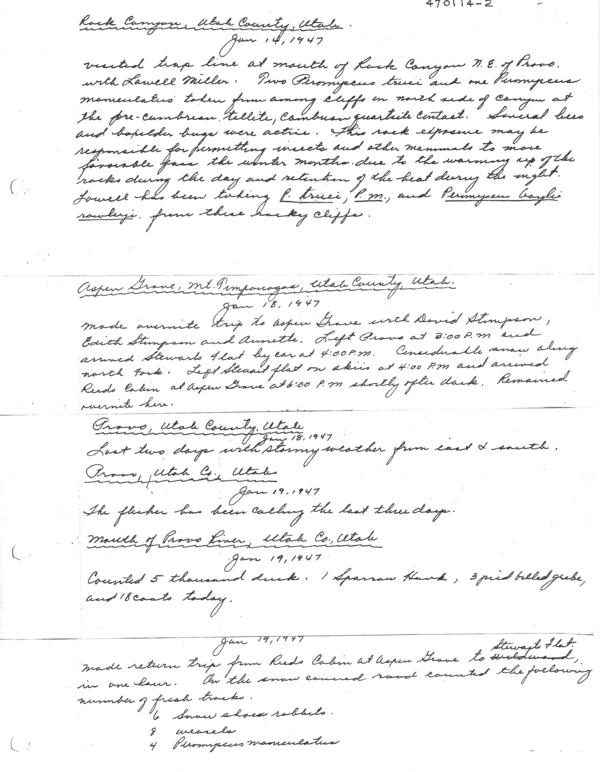 470114-2
Rock Canyon, Utah County, Utah.
Jan 14, 1947
visited trap line at mouth of Rock Canyon N.E. of Provo.
with Lowell Miller. Two Peromyscus truei and one Peromyscus
maniculatus taken from among cliffs on north side of canyon at
the pre-cambrean tellite, Cambrean quartzite contact. Several bees
and boxelder bugs were active. This rock exposure may be
responsible for permitting insects and other mammals to more
favorable pass the winter months due to the warming up of the
rocks during the day and retention of the heat during the night.
Lowell has been taking P. truei, P.m., and Peromyscus boylii
rowleyi from these rocky cliffs.
Aspen Grove, Mt. Timpanogos, Utah County, Utah.
Jan 18, 1947
made overnite trip to Aspen Grove with David Stimpson,
Edith Stimpson and Annette. Left Provo at 3:00 P.M and
arrived Stewarts Flat by car at 4:00 P.M. Considerable snow along
north Fork. Left Stewart flat on skiis at 4:00 P.M and arrived
Reeds Cabin at Aspen Grove at 6:00 P.M shortly after dark. Remained
overnite here.
Provo, Utah County, Utah
Jan 18, 1947
Last two days with stormy weather from east & south.
Provo, Utah Co., Utah
Jan 19, 1947
The flicker has been calling the last three days.
Mouth of Provo River, Utah Co., Utah
Jan 19, 1947
Counted 5 thousand duck. 1 Sparrow Hawk, 3 pied billed grebe,
and 18 coots today.
Jan 19, 1947
Stewart Flat.
made return trip from Reeds Cabin at Aspen Grove to Wildwood,
in one hour. On the snow covered road counted the following
number of fresh tracks.
6 Snow shoes rabbits.
8 weasels
4 Peromyscus maniculatus